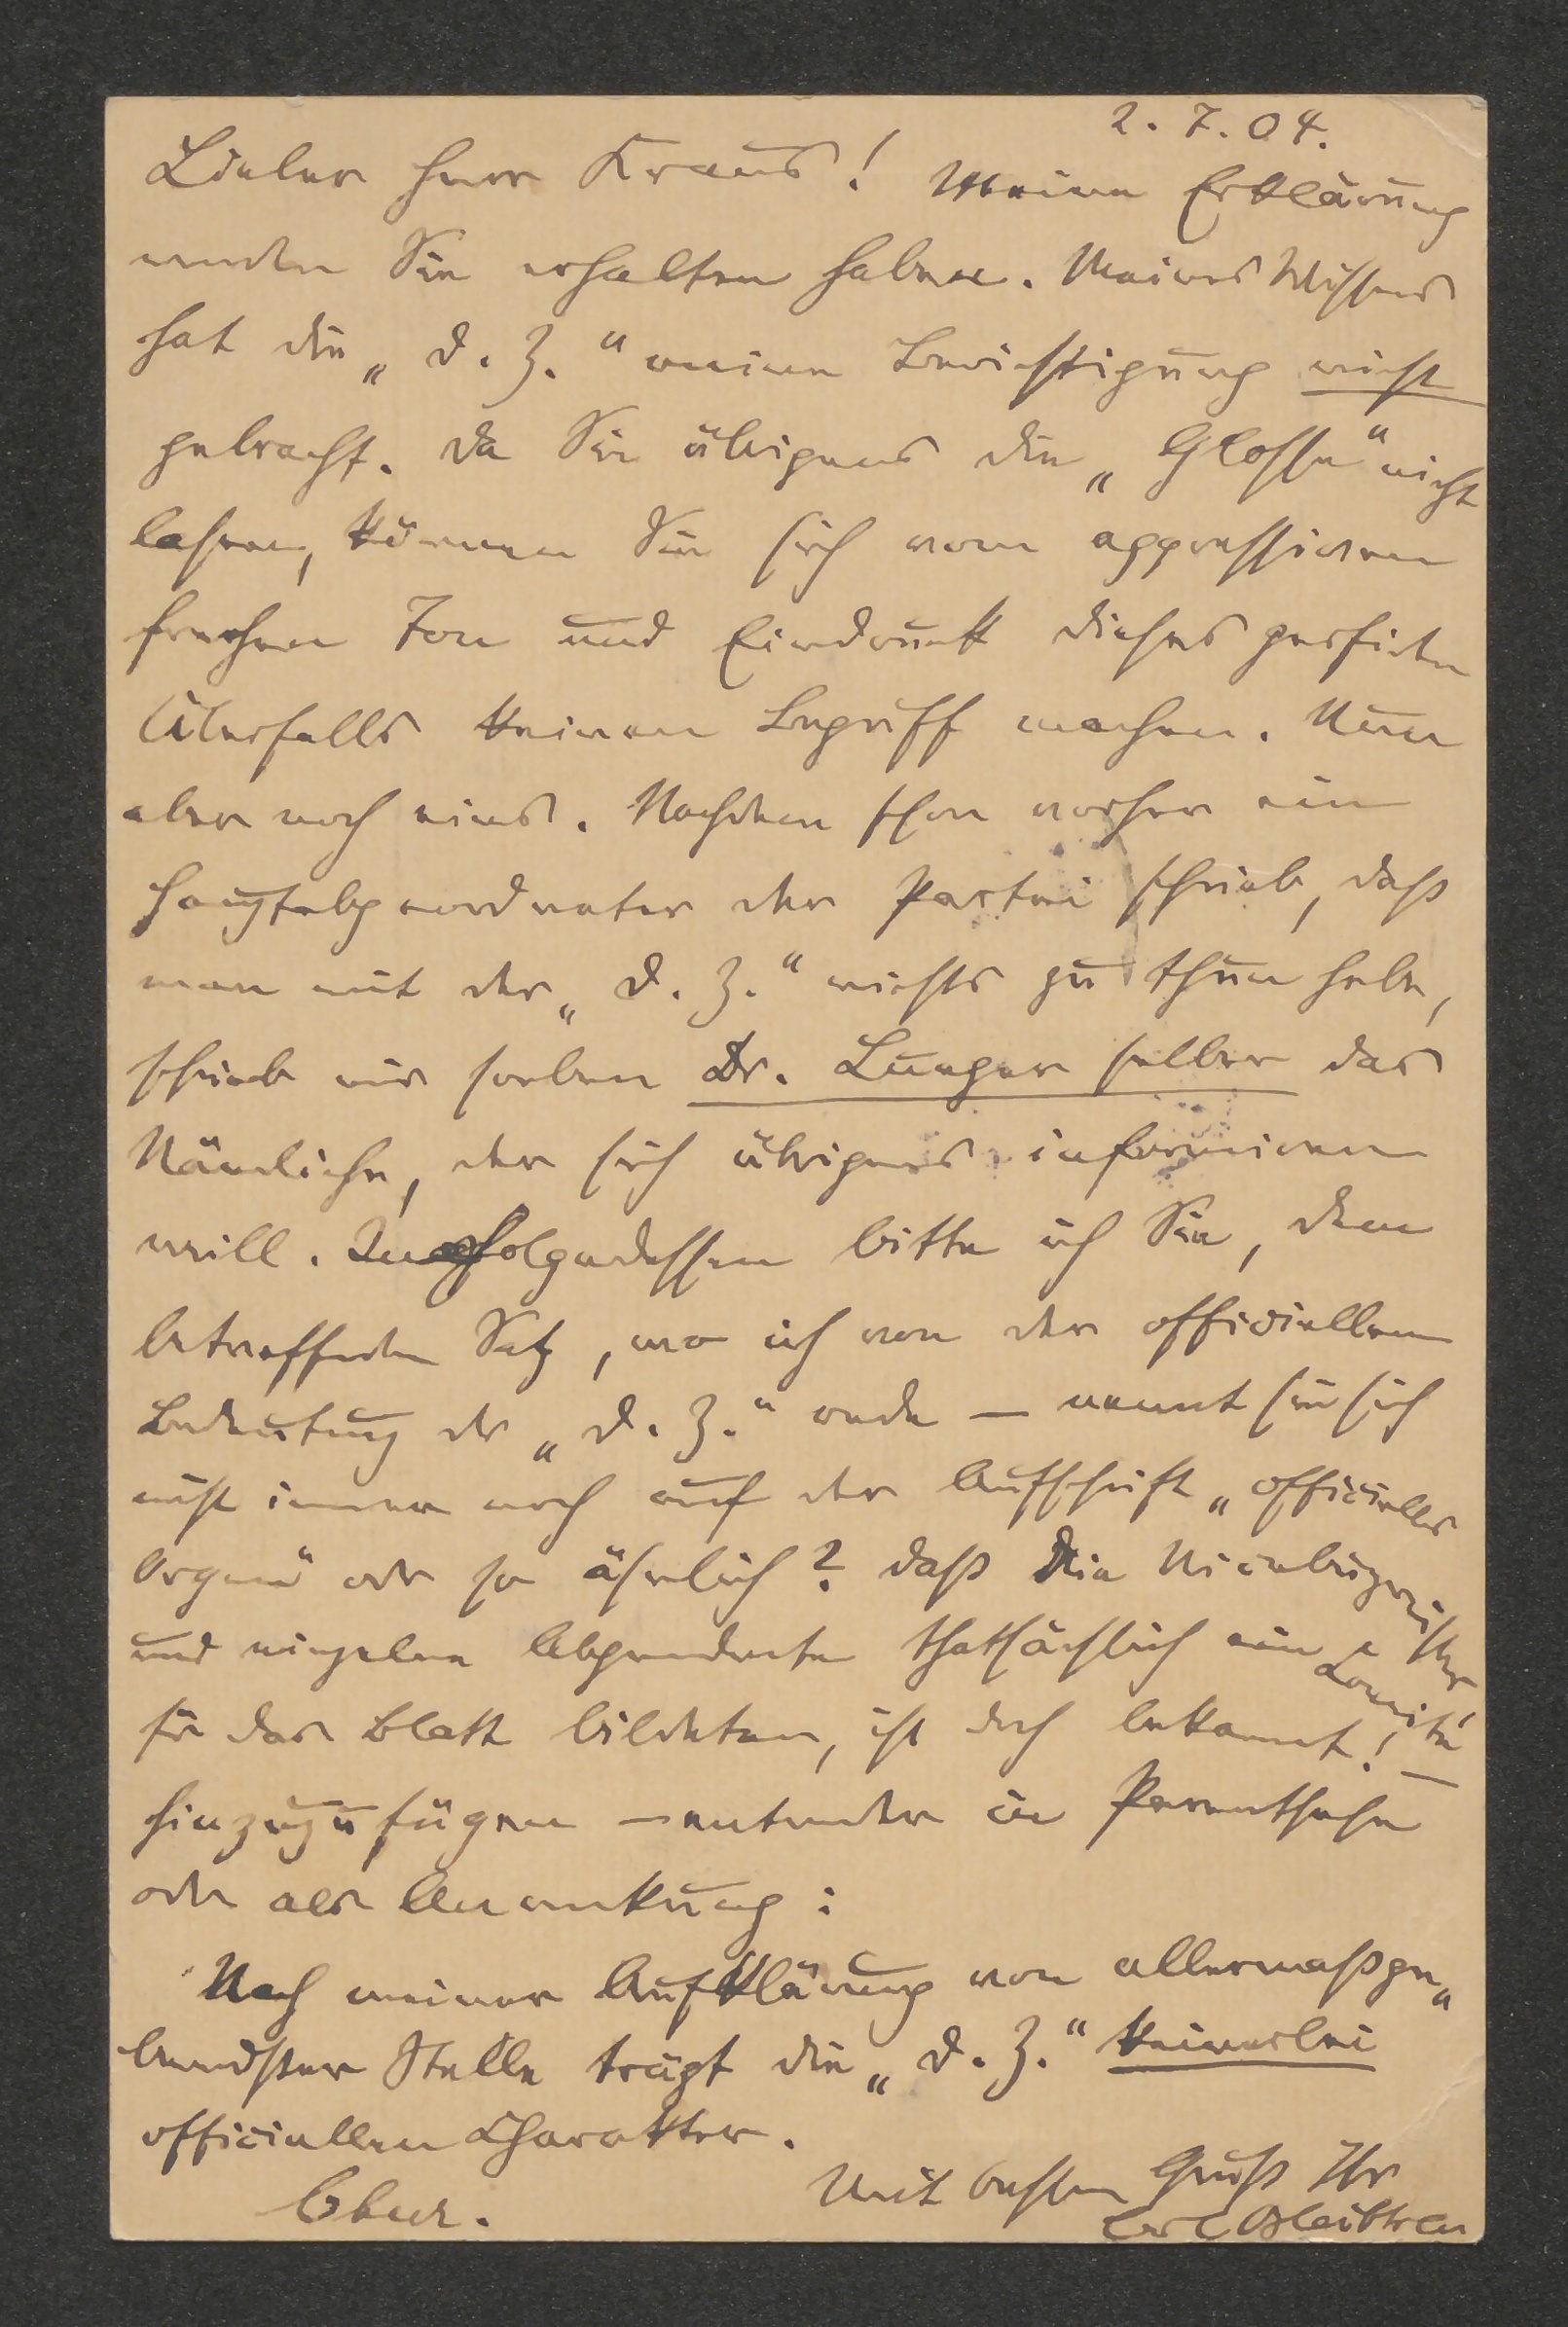 2. 7. 04.
Lieber Herr Kraus! Meine Erklärung
werden Sie erhalten haben. Meines Wissens
hat die „D. Z.“ meine Berichtigung nicht
gebracht. Da Sie übrigens die „Glosse“ nicht
lasen, können Sie sich vom aggressiven
frechen Ton und Eindruck dieses perfiden
Überfalls keinen Begriff machen. Nun
aber noch eins. Nachdem schon vorher ein
Hauptabgeordneter der Partei schrieb, daß
man mit der „D. Z.“ nichts zu thun habe,
schrieb mir soeben Dr. Lueger selber das
Nämliche, der sich übrigens informieren
will. Infolgedessen bitte ich Sie, dem
betreffenden Satz, wo ich von der officiellen
Bedeutung der „D. Z.“ rede – nennt sie sich
nicht immer noch auf der Aufschrift „officielles
Organ“ oder so ähnlich? Daß die Vicebürgermeister
und einzelne Abgeordnete thatsächlich ein Comité
für das Blatt bildeten, ist doch bekannt! –
hinzuzufügen – entweder in Parenthese
oder als Anmerkung:
Nach meiner Aufklärung von allermaßge„
bendster Stelle trägt die „D. Z.“ keinerlei
officiellen Charakter.
Mit bestem Gruß Ihr
Carl Bleibtreu